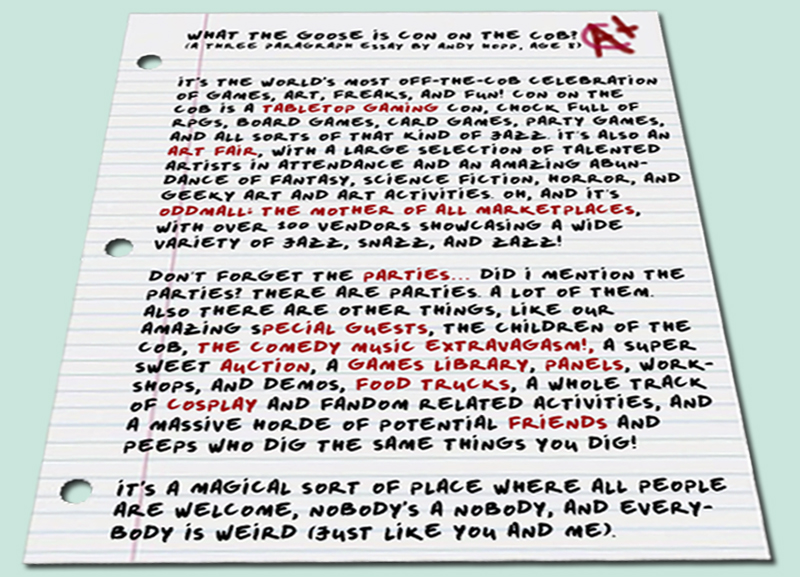 WHAT THE GOOSE IS CON ON THE COB?
A+
(A THREE PARAGRAPH ESSAY BY ANDY HOPP, AGE 8)
IT'S THE WORLD'S MOST OFF-THE-COB CELEBRATION
OF GAMES, ART, FREAKS, AND FUN! CON ON THE
COB IS A TABLETOP GAMING CON, CHOCK FULL OF
RPGS, BOARD GAMES, CARD GAMES, PARTY GAMES,
AND ALL SORTS OF THAT KIND OF JAZZ. IT'S ALSO AN
ART FAIR, WITH A LARGE SELECTION OF TALENTED
ARTISTS IN ATTENDANCE AND AN AMAZING ABUN-
DANCE OF FANTASY, SCIENCE FICTION, HORROR, AND
GEEKY ART AND ART ACTIVITIES. OH, AND IT'S
ODDMALL: THE MOTHER OF ALL MARKETPLACES,
WITH OVER 100 VENDORS SHOWCASING A WIDE
VARIETY OF JAZZ, SNAZZ, AND ZAZZ!
DON'T FORGET THE PARTIES... DID I MENTION THE
PARTIES? THERE ARE PARTIES. A LOT OF THEM.
ALSO THERE ARE OTHER THINGS, LIKE OUR
AMAZING SPECIAL GUESTS, THE CHILDREN OF THE
COB, THE COMEDY MUSIC EXTRAVAGASM!, A SUPER
SWEET AUCTION, A GAMES LIBRARY, PANELS, WORK-
SHOPS, AND DEMOS, FOOD TRUCKS, A WHOLE TRACK
OF COSPLAY AND FANDOM RELATED ACTIVITIES, AND
A MASSIVE HORDE OF POTENTIAL FRIENDS AND
PEEPS WHO DIG THE SAME THINGS YOU DIG!
IT'S A MAGICAL SORT OF PLACE WHERE ALL PEOPLE
ARE WELCOME, NOBODY'S A NOBODY, AND EVERY-
BODY IS WEIRD (JUST LIKE YOU AND ME).